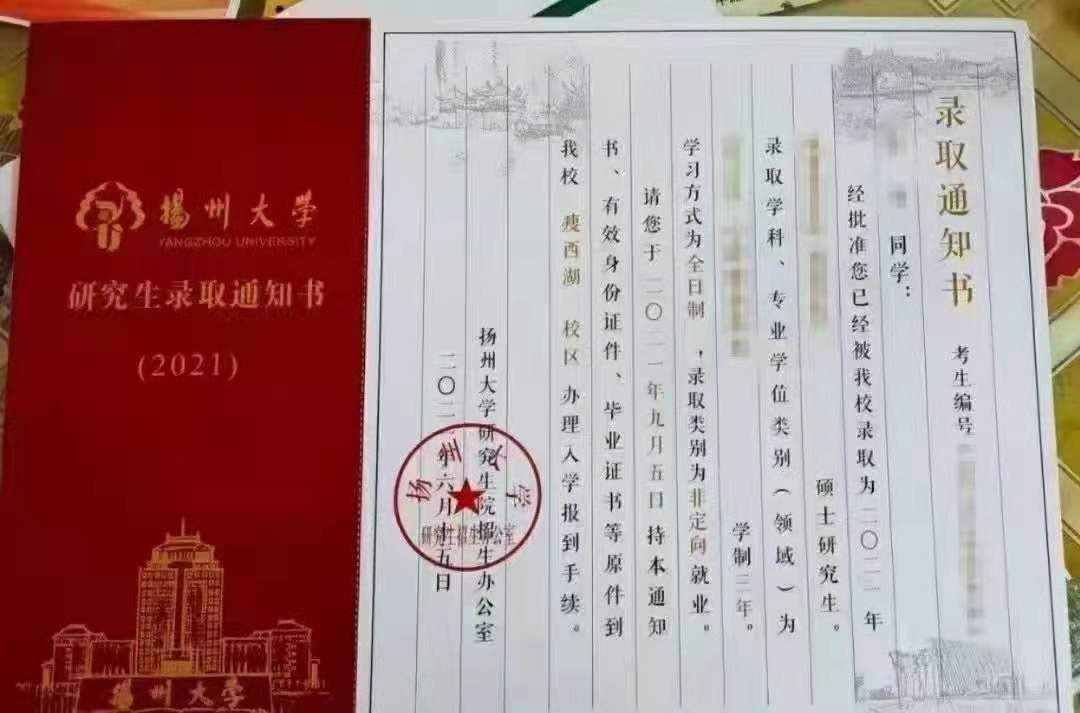 揚州大學
YANGZHOU UNIVERSITY
研究生录取通知书
(2021)
揚州大學
录取通知书 考生编号
同学：
经批准您已经被我校录取为二〇二一年
硕士研究生。
录取学科、专业学位类别（领域）为
学制三年。
学习方式为全日制，录取类别为非定向就业。
请您于二〇二一年九月五日持本通知
书、有效身份证件、毕业证书等原件到
我校 瘦西湖 校区 办理入学报到手续。
扬州大学研究生院招生办公室
二〇二一年六月十五日
扬州大学
研究生招生办公室